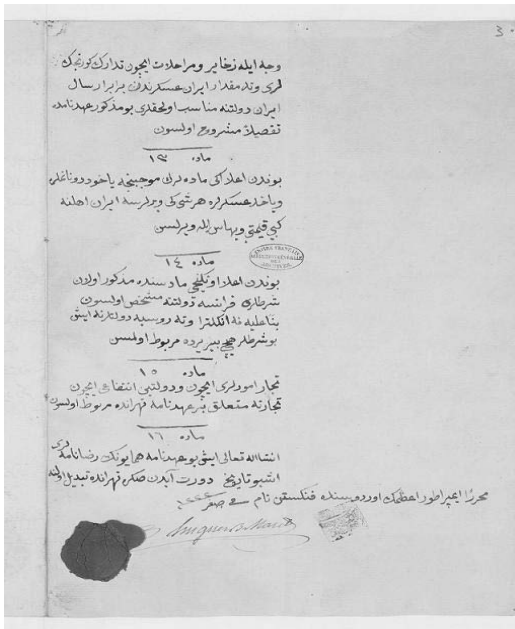 3.
وجه ایله زخایر و مراحلات ایچون تدارك
لری وته مقدار ایران عسکرندن برابر ارسال
ایران دولتنه مناسب اولجقدری بو مذکور عهدنامه
تفصیلاً مشروح اولسون
ماده ١٣
بوندن اعلاکی ماده لرك موجبنجه یاخود دونانمالره
ویاخد عسکرلره هر شی کی ویرلرسه ایران اهلنه
کبی قیمتی وبهاس ایله ویرلسن
ماده ١٤
بوندن اعلا اون ایکنجی مادسنده مذکور اولان
شرطلری فرانسه دولتنه مشخص اولسون
بناعلیه نه انکلترا وته روسیه دولتلرنه ایش
بو شرطلر هیچ بیر یرده مربوط اولمسن
ماده ١٥
تجار امورلری ایچون ودولتین انتفاعی ایچون
تجارته متعلق بر عهدنامه تهرانده مربوط اولسون
ماده ١٦
انشااله تعالی ایش بو عهدنامه همایونك رضانامه لری
اشبو تاریخ دورت آیدن صکره تهرانده تبدیل اولنه
محررا ایمپراطور اعظمك اوردوسنده فنکستن نام فی صفر ١٢٢٢